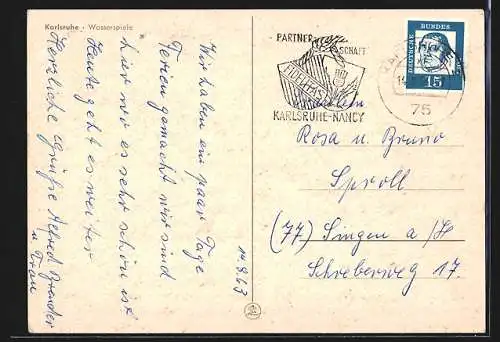 Karlsruhe · Wasserspiele
14.8.63
Wir haben ein paar Tage
Ferien gemacht wir sind
hier wo es sehr schön ist
Heute geht es weiter
Herzliche Grüße Alfred
u Frau
PARTNER
SCHAFT
FIDELITAS
KARLSRUHE-NANCY
75
DEUTSCHE BUNDES
15
Rosa u. Bruno
Sproll
(77) Singen a/H
Schreberweg 17.